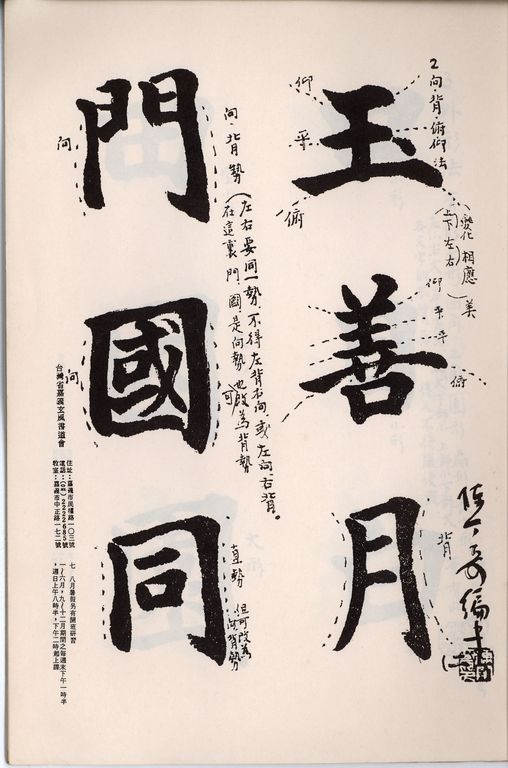 2 向背·俯仰法
玉
仰
平
俯
(變化 相應)美
(上下左右)
善
仰
平
平
俯
月
背
門
向
向·背勢(左右要同一勢,不得左背右向,或左向右背。
在這裏 門 國,是向勢也可改為背勢
國
向
同
直勢
但可改為
向背勢
台灣省嘉義玄風書道會
住址:嘉義市民權路一〇三號
電話:(〇五)2222885號
教室:嘉義市中正路一七二號
七、八月暑假另有開班研習
一~六月,九~十二月期間之每週末下午一時半
,週日上午八時半,下午二時起上課